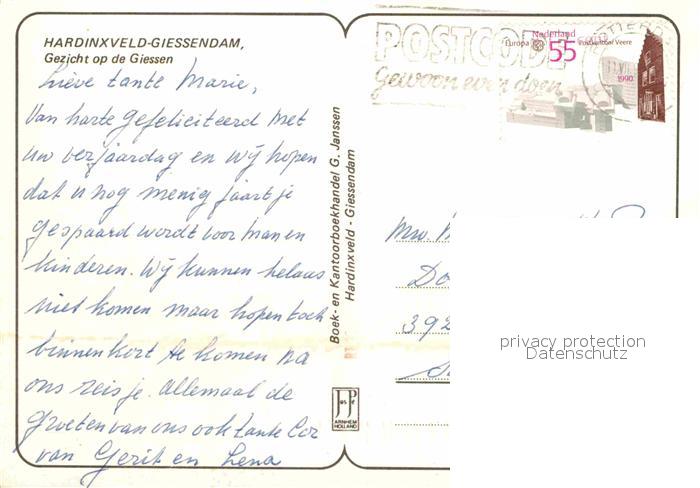 HARDINXVELD-GIESSENDAM,
Gezicht op de Giessen
Lieve tante Marie,
Van harte gefeliciteerd met
uw verjaardag en wij hopen
dat u nog menig jaartje
gespaard wordt voor man en
kinderen. Wij kunnen helaas
niet komen maar hopen toch
binnenkort te komen na
ons reisje. Allemaal de
groeten van ons ook tante Cor
van Gerit en Lena
Boek- en Kantoorboekhandel G. Janssen
Hardinxveld - Giessendam
JosPé
ARNHEM
HOLLAND
POSTCODE
gewoon even doen
Nederland
Europa
55
Postkantoor Veere
1990
Mw.
Do
392
privacy protection
Datenschutz